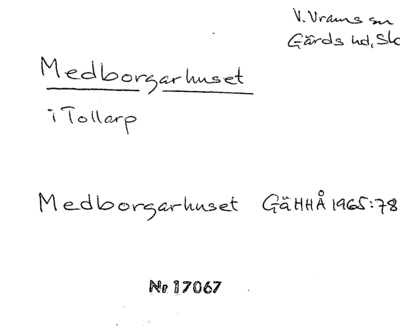 V. Vrams sn
Gärds hd, Sk
Medborgarhuset
i Tollarp
Medborgarhuset GäHHÅ 1965:78
Nr 17067